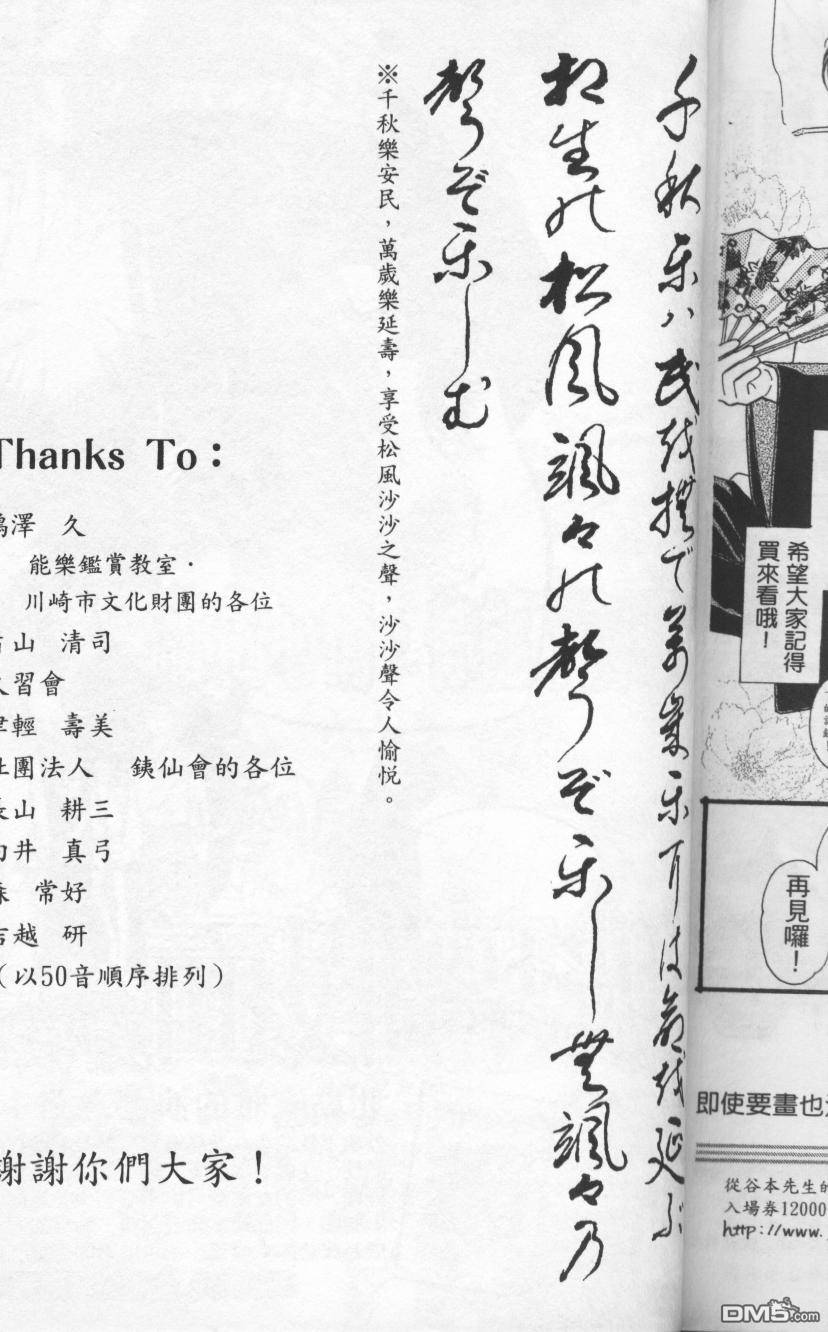 希望大家記得
買來看哦！
再見囉！
即使要畫也
從谷本先生的
入場券12000
http://www.
千秋楽ハ民を撫で萬歳楽には命を延ぶ
相生の松風颯々の聲ぞ楽しむ颯々乃
聲ぞ楽しむ
※千秋樂安民，萬歲樂延壽，享受松風沙沙之聲，沙沙聲令人愉悅。
Thanks To：
澤 久
能樂鑑賞教室·
川崎市文化財團的各位
山 清司
久習會
津輕 壽美
社團法人 銕仙會的各位
長山 耕三
向井 真弓
森 常好
吉越 研
（以50音順序排列）
謝謝你們大家！
DM5.com